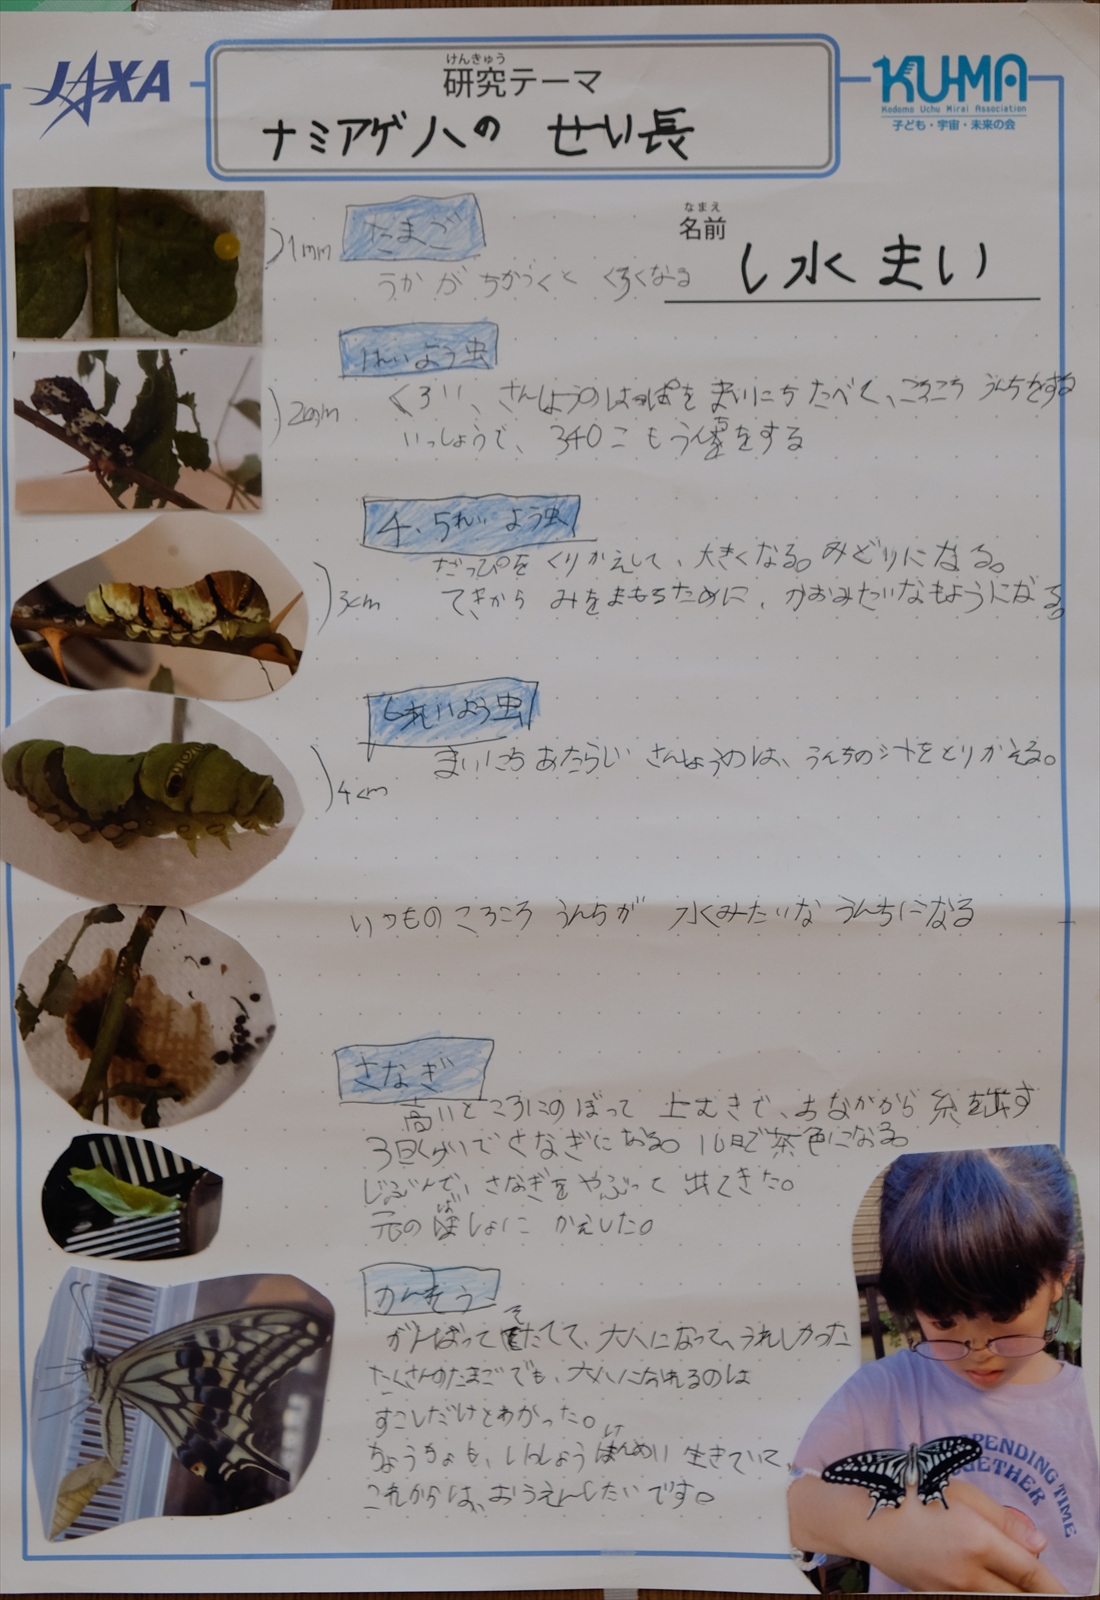 JAXA
けんきゅう
研究テーマ
ナミアゲハの せい長
KUMA
Kodomo Uchu Mirai Association
子ども・宇宙・未来の会
なまえ
名前
し水 まい
1mm
たまご
うかがちかづくと くろくなる
2mm
1れいよう虫
くろい、さんしょうのはっぱをまいにちたべて、ころころうんちをする
いっしょうで、340こもうんちをする
3cm
4、5れいよう虫
だっぴをくりかえして、大きくなる。みどりになる。
てきからみをまもるために、かおみたいなもようになる。
4cm
れいよう虫
まいにちあたらしいさんしょうのは、うんちのシートをとりかえる。
いつものころころうんちが 水みたいなうんちになる
さなぎ
高いところにのぼって 上むきで、おなかから糸を出す
3日くらいでさなぎになる。10日で茶色になる。
じぶんで、さなぎをやぶって出てきた。
元のばしょにかえした。
かんそう
がんばってそだてて、大人になって、うれしかった
たくさんのたまごでも、大人になれるのは
すこしだけとわかった。
ちょうちょも、いっしょうけんめい生きていて、
これからは、おうえんしたいです。
SPENDING TIME
TOGETHER